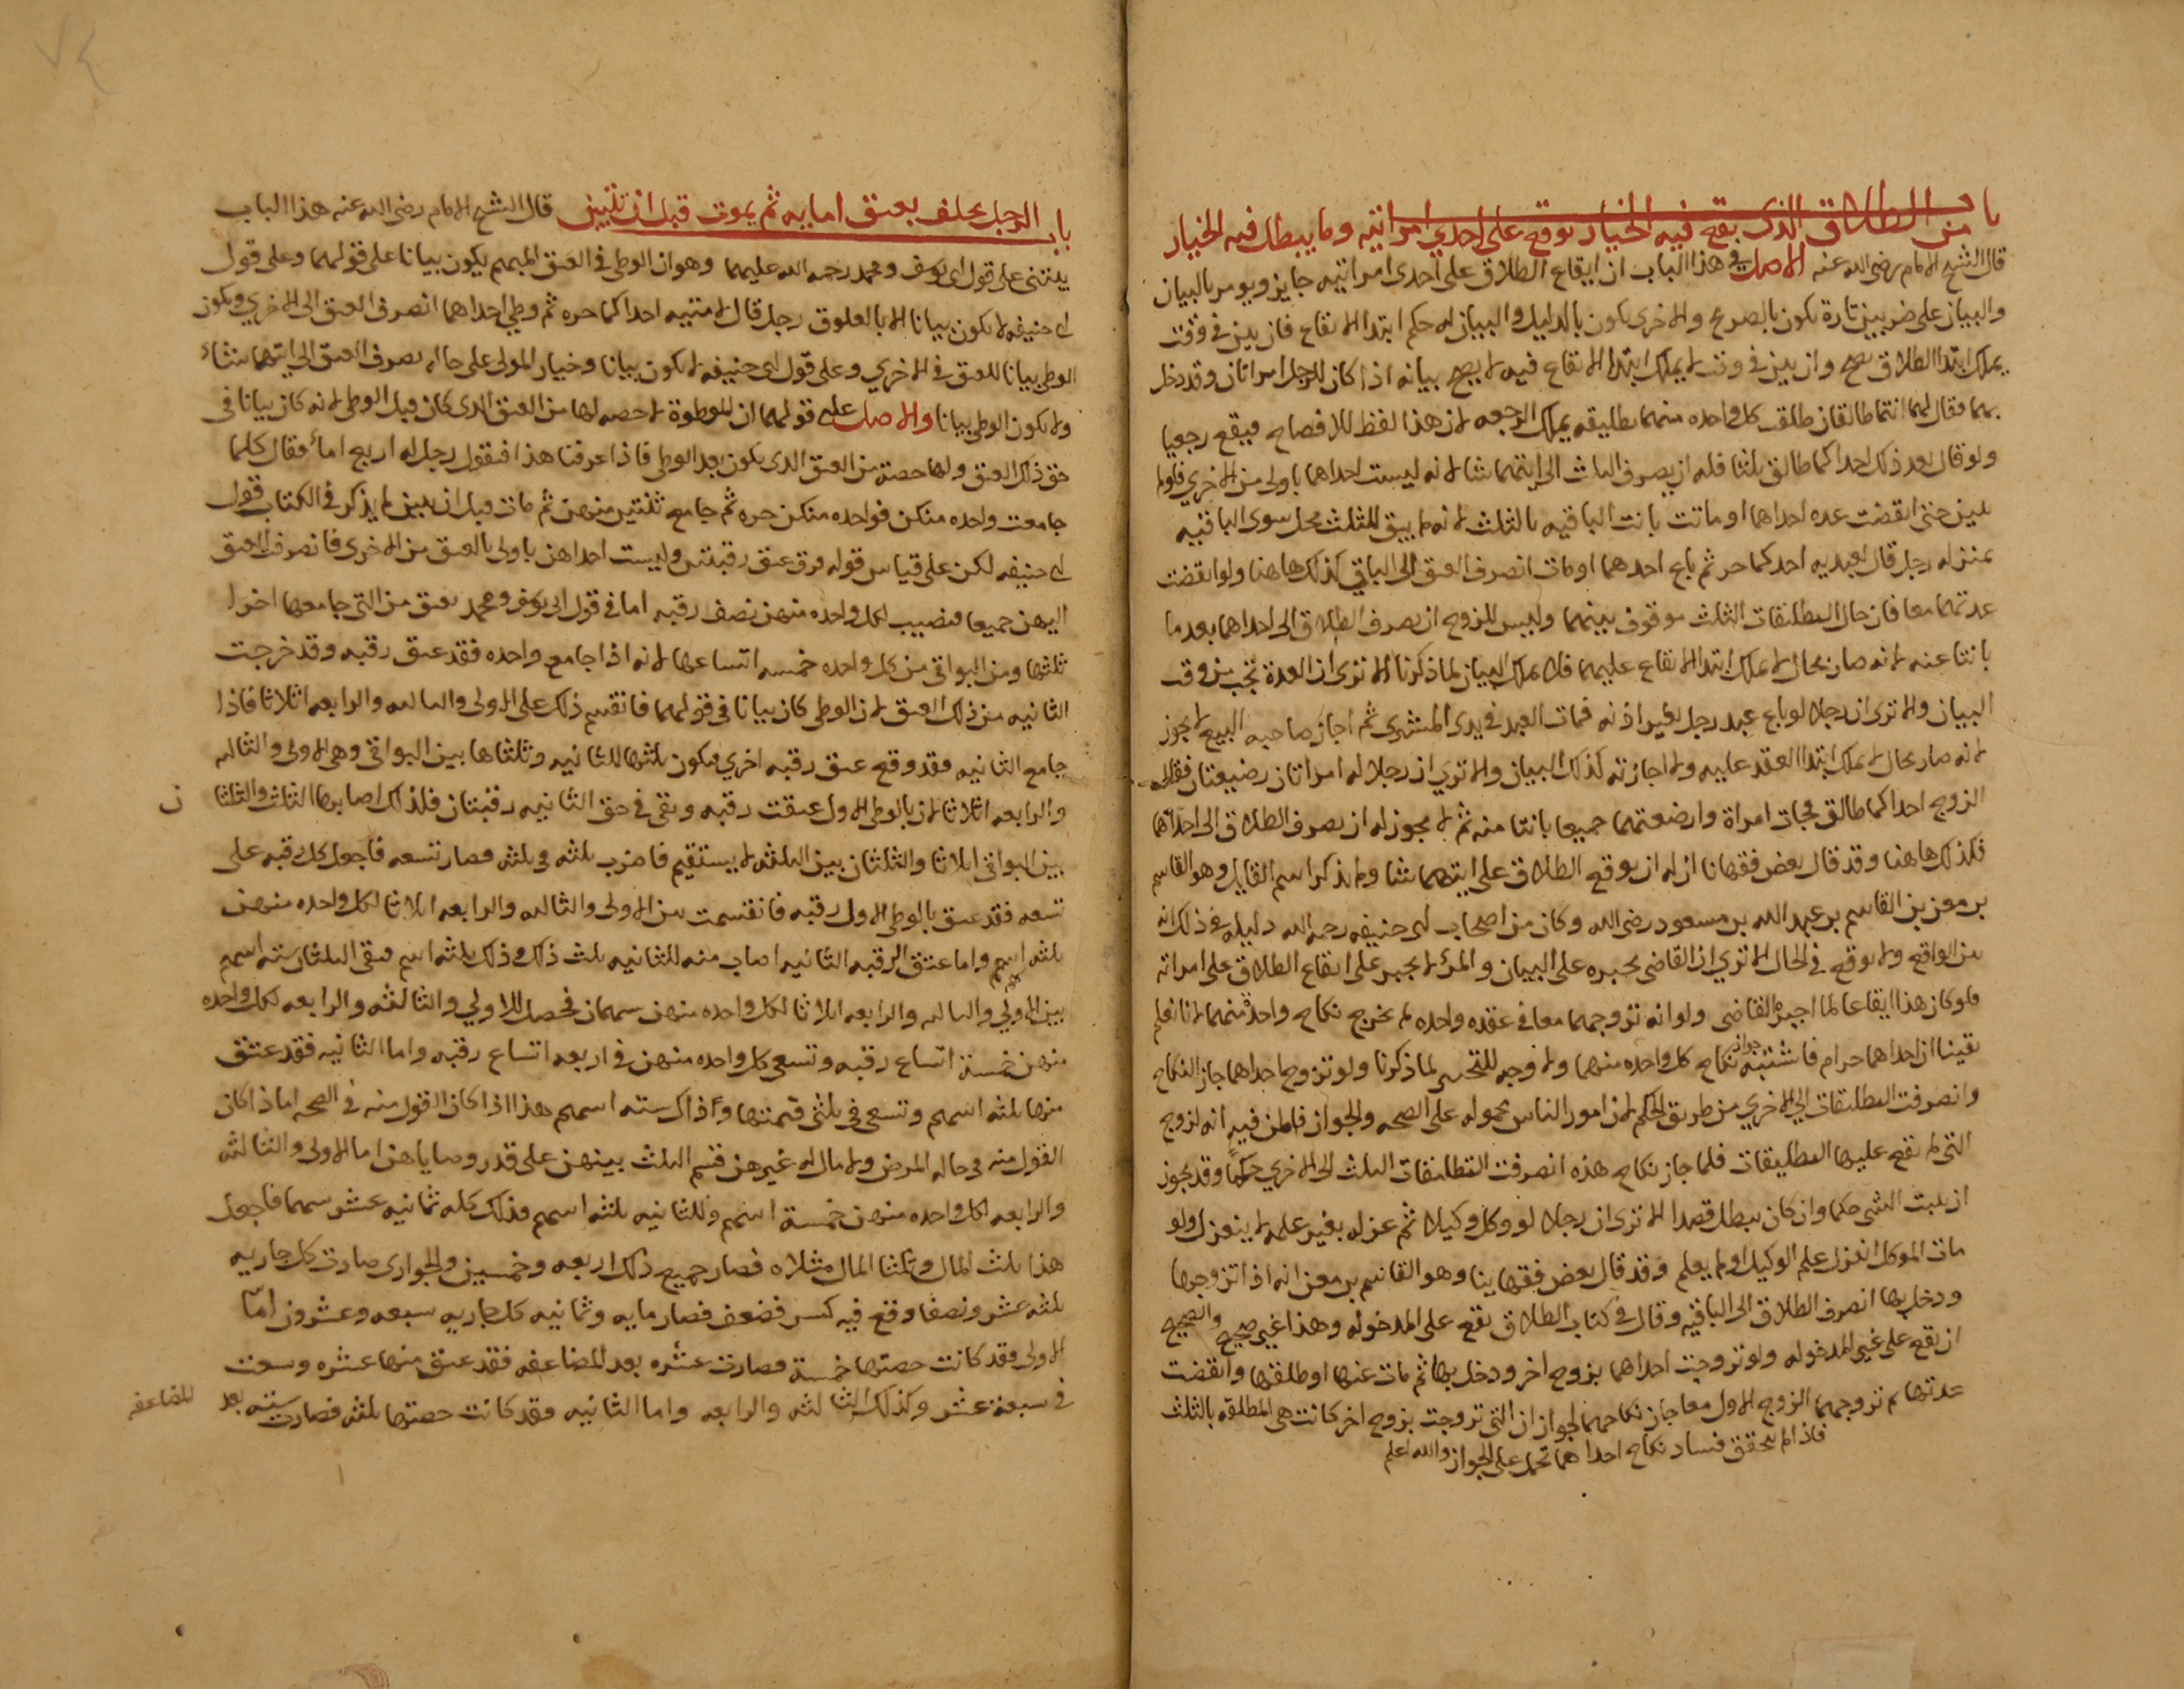 باب من الطلاق الذي يقع فيه الخيار يوقع على احدي امراتيه وما يبطل فيه الخيار
قال الشيخ الامام رضي الله عنه الاصل في هذا الباب ان ايقاع الطلاق على احدى امراتيه جايز ويومر بالبيان
والبيان على ضربين تارة يكون بالصريح والاخرى يكون بالدليل والبيان له حكم ابتدا الايقاع فان بين في وقت
يملك ابتدا الطلاق يصح وان بين في وقت لا يملك ابتدا الايقاع فيه لا يصح بيانه اذا كان للرجل امراتان وقد دخل
بهما فقال لهما انتما طالقان طلقت كل واحده منهما تطليقه يملك الرجعه لان هذا لفظ للافصاح فيقع رجعيا
ولو قال بعد ذلك احداكما طالق ثلثا فله ان يصرف الثلث الى ايتهما شا لانه ليست احداهما باولى من الاخري فلو لم
يبين حتى انقضت عده احداهما او ماتت بانت الباقيه بالثلث لانه لم يبق للثلث محل سوى الباقيه
بمنزله رجل قال لعبديه احدكما حر ثم باع احدهما او مات انصرف العتق الى الباقي كذلك هاهنا ولو انقضت
عدتهما معا فان حال التطليقات الثلث موقوف بينهما وليس للزوج ان يصرف الطلاق الى احداهما بعد ما
بانتا عنه لانه صار بحال لا يملك ابتدا الايقاع عليهما فلا يملك البيان لما ذكرنا الا ترى ان العدة تجب من وقت
البيان والا ترى ان رجلا لو باع عبد رجل بغير اذنه فمات العبد في يدى المشترى ثم اجاز صاحبه البيع لا يجوز
لانه صار بحال لا يملك ابتدا العقد عليه ولا اجازته كذلك البيان والا تري ان رجلا له امراتان رضيعتان فقال
الزوج احداكما طالق فجات امراة وارضعتهما جميعا بانتا منه ثم لا يجوز له ان يصرف الطلاق الى احداهما
فكذلك هاهنا وقد قال بعض فقهانا ان له ان يوقع الطلاق على ايتهما شا ولم يذكر اسم القايل وهو القاسم
بن معن بن القاسم بن عبد الله بن مسعود رضي الله وكان من اصحاب ابى حنيفه رحمه الله دليله في ذلك انه
بين الواقع ولا يوقع في الحال الا تري ان القاضى يجبره على البيان والمرء لا يجبر على ايقاع الطلاق على امراته
فلو كان هذا ايقاعا لما اجبره القاضى ولو انه تزوجهما معا في عقده واحده لم يخرج نكاح واحدة منهما لانا نعلم
يقينا ان احداهما حرام فاشتبه جواز نكاح كل واحده منهما ولا وجه للتحرى لما ذكرنا ولو تزوج احداهما جاز النكاح
وانصرفت التطليقات الي الاخري من طريق الحكم لان امور الناس محموله على الصحه والجواز فالظن فيه انه تزوج
التي لم تقع عليها التطليقات فلما جاز نكاح هذه انصرفت التطليقات الثلث الى الاخري حكما وقد يجوز
ان يثبت الشى حكما وان كان يبطل قصدا الا ترى ان رجلا لو وكل وكيلا ثم عزله بغير علمه لا ينعزل ولو
مات الموكل انعزل علم الوكيل او لم يعلم وقد قال بعض فقهاينا وهو القاسم بن معن انه اذا تزوجها
ودخل بها انصرف الطلاق الى الباقيه وقال في كتاب الطلاق يقع على المدخوله وهذا غير صحيح والصحيح
ان يقع على غير المدخوله ولو تزوجت احداهما بزوج اخر ودخل بها ثم مات عنها او طلقها وانقضت
عدتها ثم تزوجهما الزوج الاول معا جاز نكاحهما لجواز ان التى تزوجت بزوج اخر كانت هى المطلقه بالثلث
فاذا لم يتحقق فساد نكاح احداهما تحمل على الجواز والله اعلم
باب الرجل يحلف بعتق امايه ثم يموت قبل ان يبين قال الشيخ الامام رضى الله عنه هذا الباب
يبتنى على قول ابى يوسف ومحمد رحمه الله عليهما وهو ان الوطى في العتق المبهم يكون بيانا على قولهما وعلى قول
ابى حنيفه لا يكون بيانا الا بالعلوق رجل قال لامتيه احداكما حره ثم وطى احداهما انصرف العتق الى الاخري ويكون
الوطى بيانا للعتق في الاخري وعلى قول ابى حنيفه لا يكون بيانا وخيار المولى على حاله يصرف العتق الى ايتهما شاء
ولا يكون الوطى بيانا والاصل على قولهما ان الموطوة لا حصه لها من العتق الذى كان قبل الوطى لانه كان بيانا في
حق ذلك العتق ولها حصة من العتق الذى يكون بعد الوطى فاذا عرفنا هذا فنقول رجل له اربع اماء فقال كلما
جامعت واحده منكن فواحده منكن حره ثم جامع ثنتين منهن ثم مات قبل ان يبين لم يذكر في الكتاب قول
ابى حنيفه لكن على قياس قوله فرق عتق رقبتين وليست احداهن باولى بالعتق من الاخرى فانصرف العتق
اليهن جميعا فنصيب لكل واحده منهن نصف رقبه اما في قول ابى يوسف ومحمد يعتق من التى جامعها اخرا
ثلثها ومن البواقى من كل واحده خمسه اتساعها لانه اذا جامع واحده فقد عتق رقبه وقد خرجت
الثانيه من ذلك العتق لان الوطى كان بيانا في قولهما فانقسم ذلك على الاولى والثالثه والرابعه اثلاثا فاذا
جامع الثانيه فقد وقع عتق رقبه اخري فيكون ثلثها للثانيه وثلثاها بين البواقى وهى الاولى والثالثه
والرابعه اثلاثا لان بالوطى الاول عتقت رقبه وبقى في حق الثانيه رقبتان فلذلك اصابها الثلث والثلثا ن
بين البواقى اثلاثا والثلثان بين الثلثه لا يستقيم فاضرب ثلثه في ثلثه فصار تسعه فاجعل كل رقبه على
تسعه فقد عتق بالوطى الاول رقبه فانقسمت بين الاولى والثالثه والرابعه اثلاثا لكل واحده منهن
ثلثه اسهم واما عتق الرقبه الثانيه اصاب منه للثانيه ثلث ذلك وذلك ثلثه اسهم فبقى الثلثان سته اسهم
بين الاولى والثالثه والرابعه اثلاثا لكل واحده منهن سهمان فحصل للاولي والثالثه والرابعه لكل واحده
منهن خمسة اتساع رقبه وتسعى كل واحده منهن في اربعه اتساع رقبه واما الثانيه فقد عتق
منها ثلثه اسهم وتسعى في ثلثى قيمتها وذاك سته اسهم هذا اذا كان القول منه في الصحه اما اذا كان
القول منه في حاله المرض ولا مال له غيرهن قسم الثلث بينهن على قدر وصاياهن اما الاولى والثالثه
والرابعه لكل واحده منهن خمسة اسهم وللثانيه ثلثه اسهم فذلك كله ثمانيه عشر سهما فاجعل
هذا ثلث المال وثلثا المال مثلاه فصار جميع ذلك اربعه وخمسين والجوارى صارت كل جاريه
ثلثه عشر ونصفا وقع فيه كسر فضعف فصار مايه وثمانيه كل جاريه سبعه وعشرون امّا
الاولى فقد كانت حصتها خمسة فصارت عشره بعد المضاعفه فقد عتق منها عشره وسعت
في سبعة عشر وكذلك الثالثه والرابعه واما الثانيه فقد كانت حصتها ثلثه فصارت سته بعد
المضاعفه